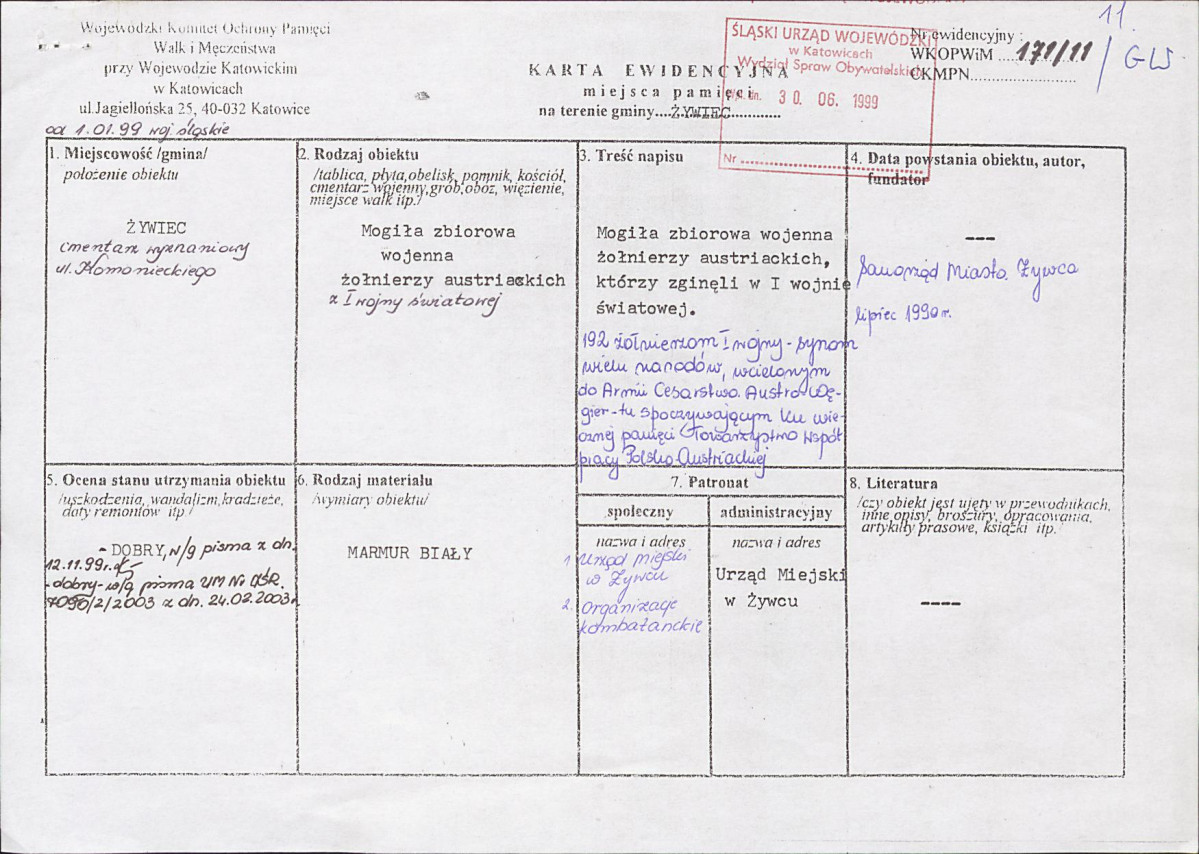 Wojewódzki Komitet Ochrony Pamięci
Walk i Męczeństwa
przy Wojewodzie Katowickim
w Katowicach
ul.Jagiellońska 25, 40-032 Katowice
od 1.01.99 woj śląskie
KARTA EWIDENCYJNA
miejsca pamięci
na terenie gminy....ŻYWIEC.............
ŚLĄSKI URZĄD WOJEWÓDZKI
w Katowicach
Wydział Spraw Obywatelskich
30. 06. 1999
Nr
11.
Nr ewidencyjny :
WKOPWiM ....171/11 / GW
CKMPN......................
1. Miejscowość /gmina/
położenie obiektu
ŻYWIEC
cmentarz wyznaniowy
ul. Komonieckiego
2. Rodzaj obiektu
/tablica, płyta,obelisk, pomnik, kościół,
cmentarz wojenny,grób,obóz, więzienie,
miejsce walk itp./
Mogiła zbiorowa
wojenna
żołnierzy austriackich
z I wojny światowej
3. Treść napisu
Mogiła zbiorowa wojenna
żołnierzy austriackich,
którzy zginęli w I wojnie
światowej.
192 żołnierzom I wojny - synom
wielu narodów, wcielonym
do Armii Cesarstwa Austro-Wę-
gier - tu spoczywającym Ku wie-
cznej pamięci Towarzystwo Współ
pracy Polsko Austriackiej
4. Data powstania obiektu, autor,
fundator
---
Samorząd Miasta Żywca
lipiec 1990 r.
5. Ocena stanu utrzymania obiektu
/uszkodzenia, wandalizm,kradzieże,
daty remontów itp /
- DOBRY, w/g pisma z dn.
12.11.99r.
- dobry - w/g pisma UM Nr
7090/2/2003 z dn. 24.02.2003r.
6. Rodzaj materiału
/wymiary obiektu/
MARMUR BIAŁY
7. Patronat
społeczny
nazwa i adres
1. Urząd miejski
w Żywcu
2. Organizacje
kombatanckie
administracyjny
nazwa i adres
Urząd Miejski
w Żywcu
8. Literatura
/czy obiekt jest ujęty w przewodnikach,
inne opisy, broszury, opracowania,
artykuły prasowe, książki itp./
----